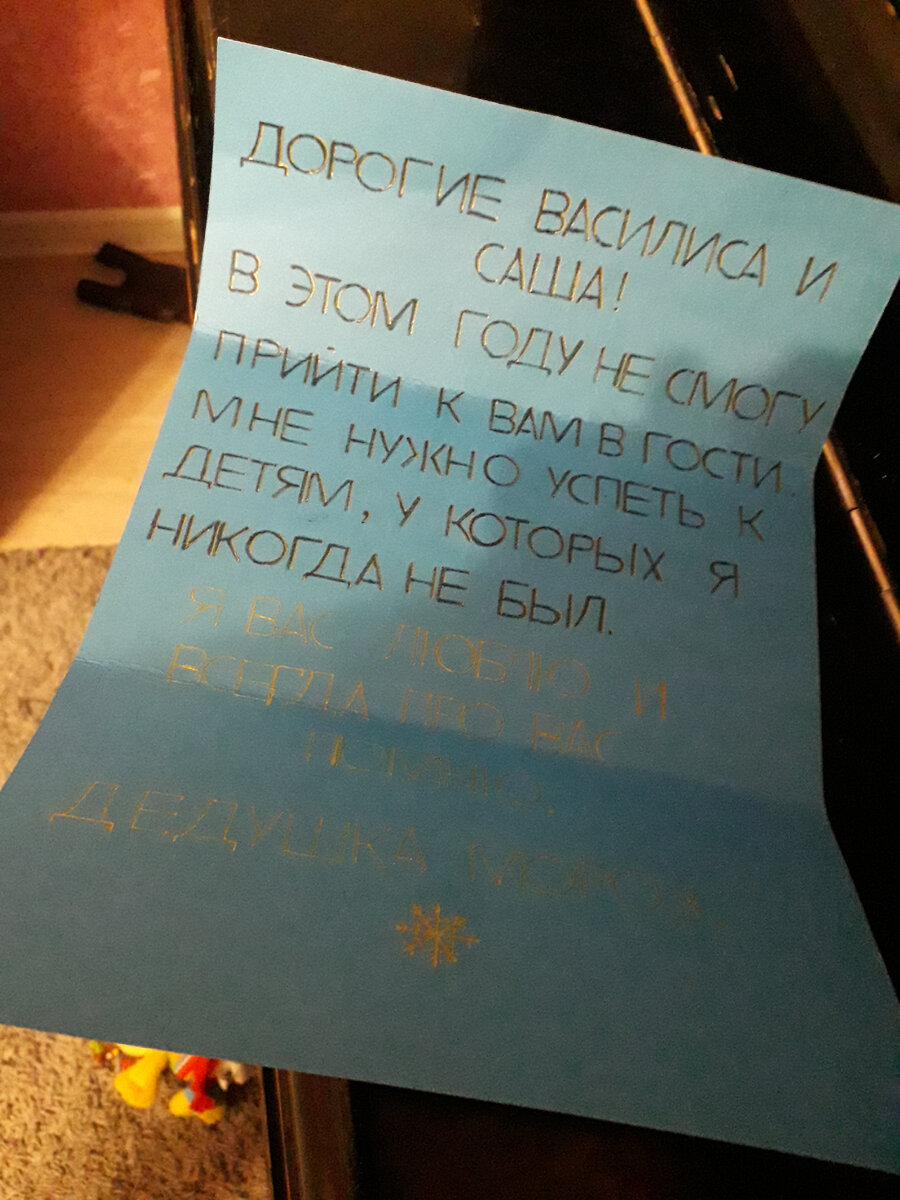 ДОРОГИЕ ВАСИЛИСА И
САША!
В ЭТОМ ГОДУ НЕ СМОГУ
ПРИЙТИ К ВАМ В ГОСТИ.
МНЕ НУЖНО УСПЕТЬ К
ДЕТЯМ, У КОТОРЫХ Я
НИКОГДА НЕ БЫЛ.
Я ВАС ЛЮБЛЮ И
ВСЕГДА ПРО ВАС
ПОМНЮ.
ДЕДУШКА МОРОЗ.